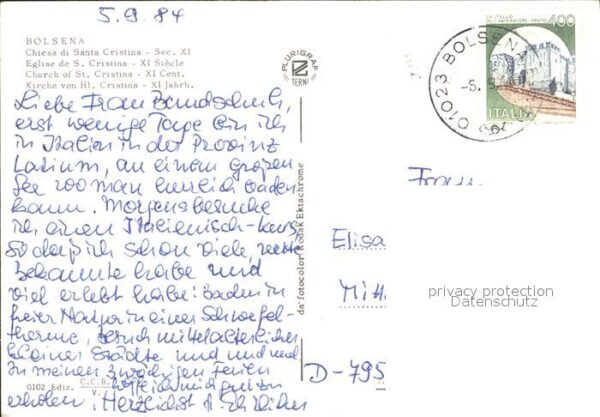 5.9.84
BOLSENA
Chiesa di Santa Cristina - Sec. XI
Eglise de S. Cristina - XI Siècle
Church of St. Cristina - XI Cent.
Kirche von Hl. Cristina - XI Jahrh.
PLURIGRAF
TERNI
CASTELLO
DELL'IMPERATORE - PRATO
400
ITALIA
01023 BOLSENA
Liebe Frau Bandschuh,
erst wenige Tage bin ich
in Italien in der Provinz
Latium, an einem großen
See wo man herrlich baden
kann. Morgens besuche
ich einen Italienisch-kurs
So daß ich schon viele, nette
Bekannte habe und
viel erlebt habe: Baden in
freier Natur in einer Schwefel-
therme, Besuch mittelalterlicher
kleiner Städte und und und
In meinen Ferien
hoffe ich mich gut zu
erholen. Herzlichst
da fotocolor Kodak Ektachrome
0102 Ediz. C.C.B.
V.
Frau
Elisa
Mitt
D-795
privacy protection
Datenschutz